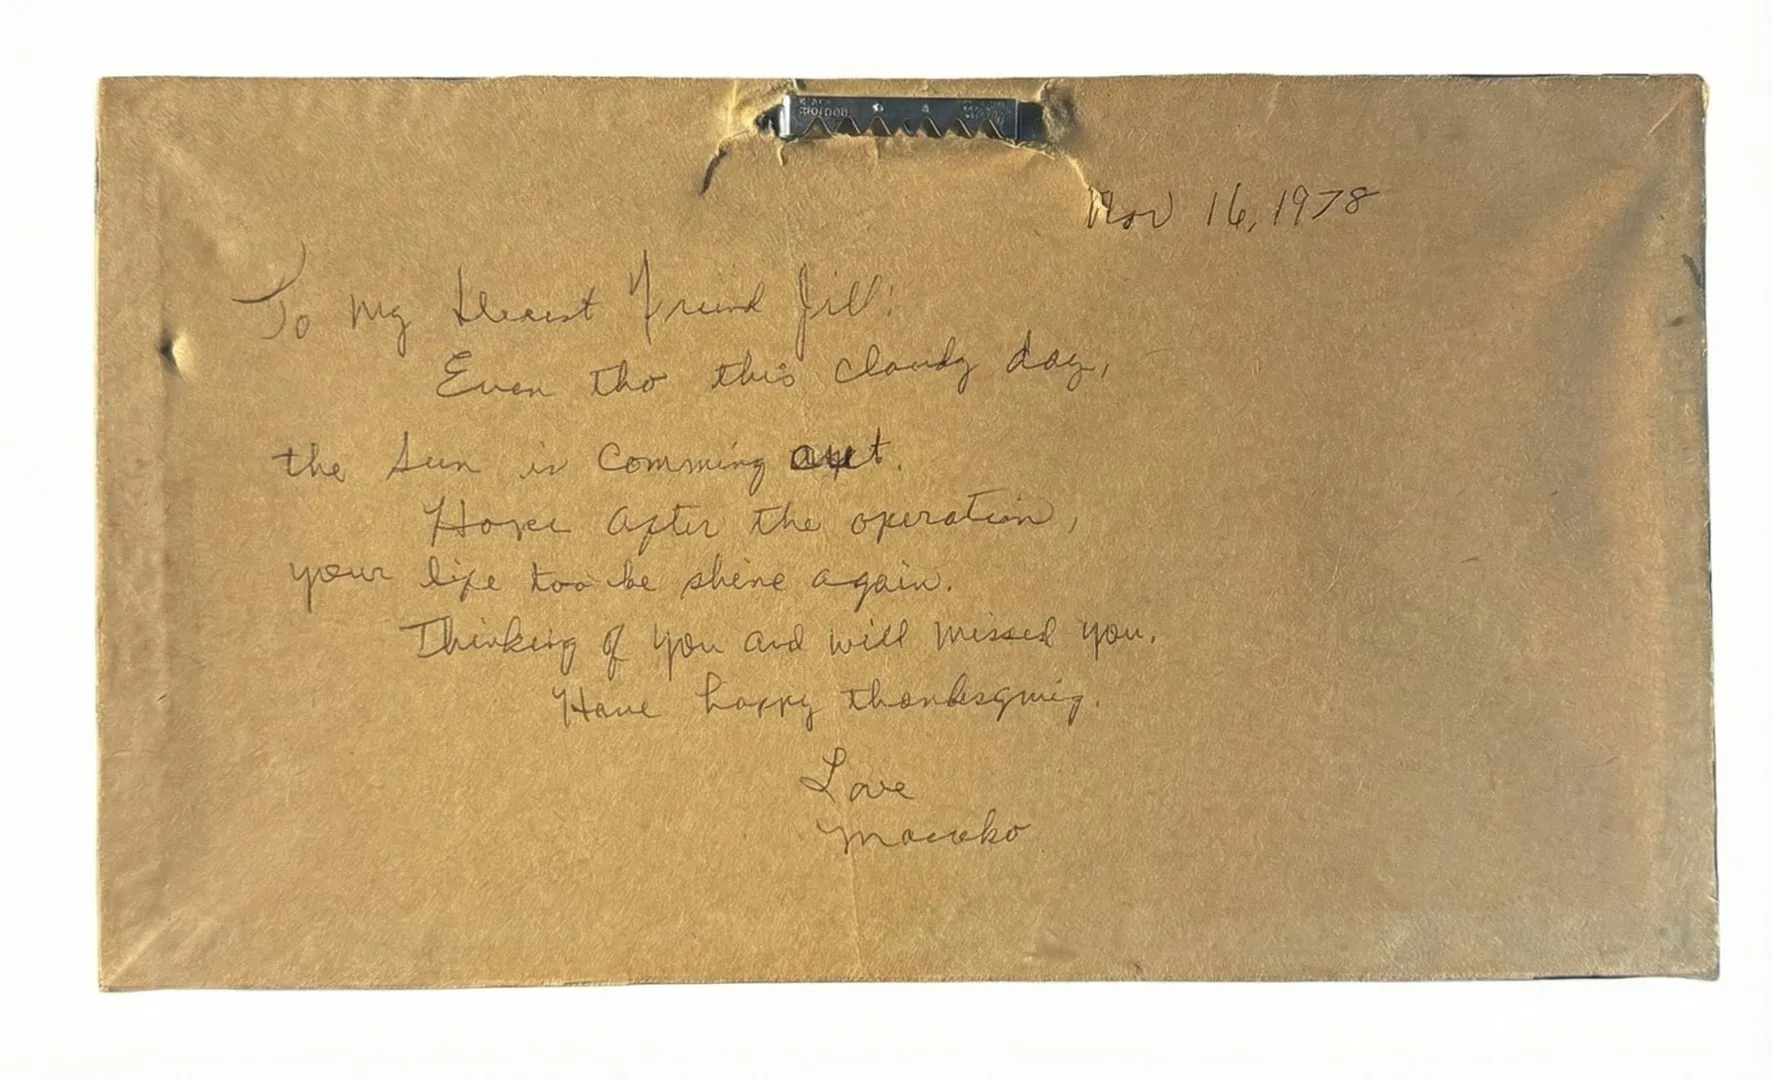 Nov 16, 1978
To My Dearest Friend Jill!
Even tho this cloudy day,
the sun is comming out.
Hope after the operation,
your life too be shine again.
Thinking of you and will missed you.
Have happy thanksgiving.
Love